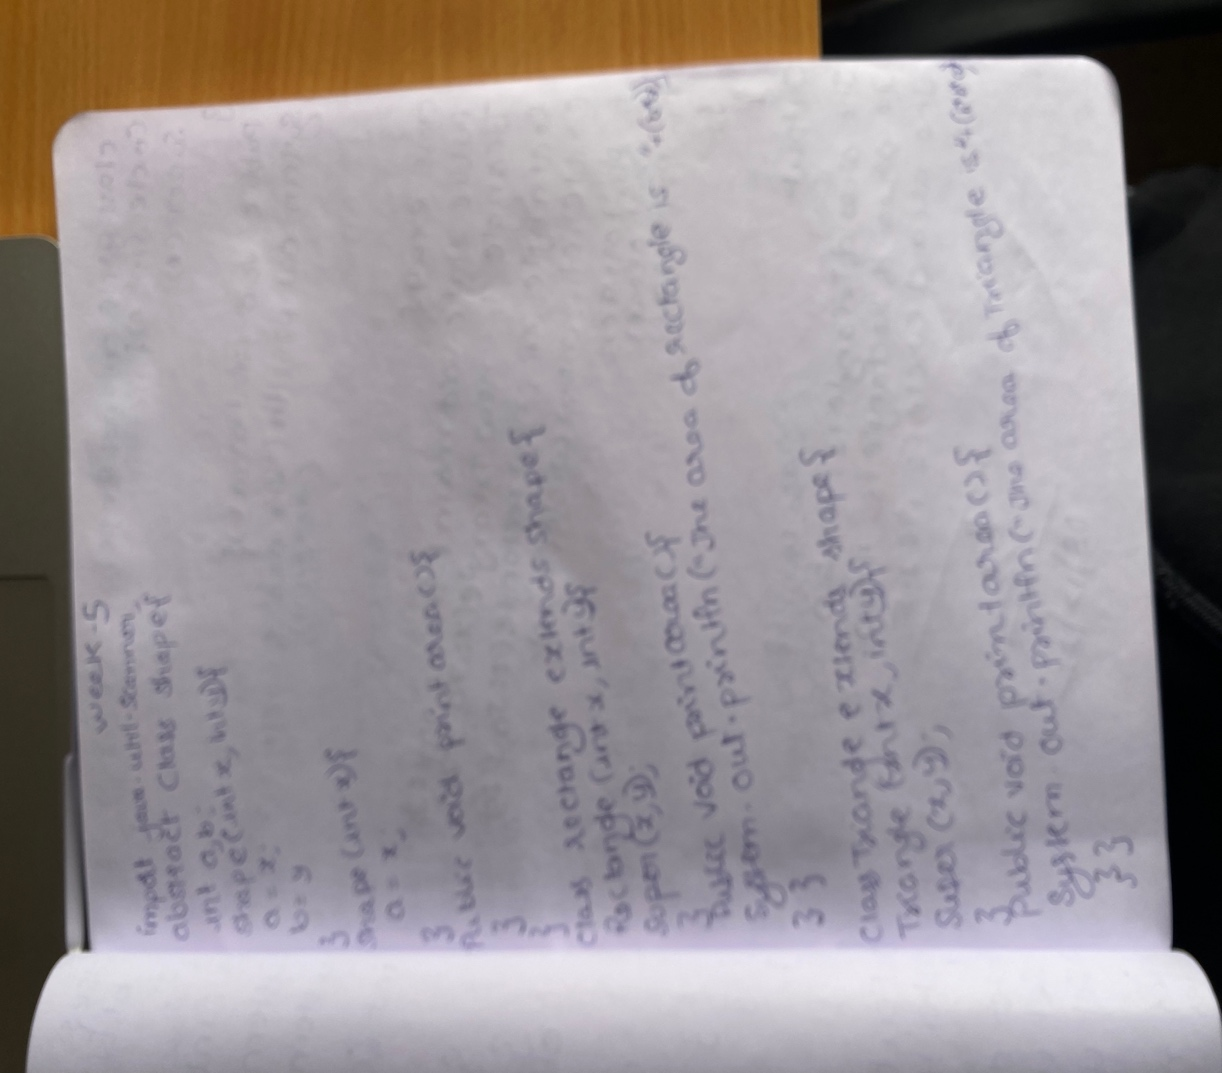 week-5
import java.util.Scanner;
abstract class shape{
int a,b;
shape(int x, int y){
a = x;
b = y
}
shape(int x){
a = x;
}
Public void printarea(){
}
}
Class rectange extends shape{
Rectange (int x, int y){
Super(x,y);
}
Public void printarea(){
System.out.println("The area of rectangle is "+(b*a)
} }
Class Triange extends shape{
Triange (int x, int y){
Super (x,y);
}
Public void printarea(){
System.out.println("The area of Triangle is"+
} }